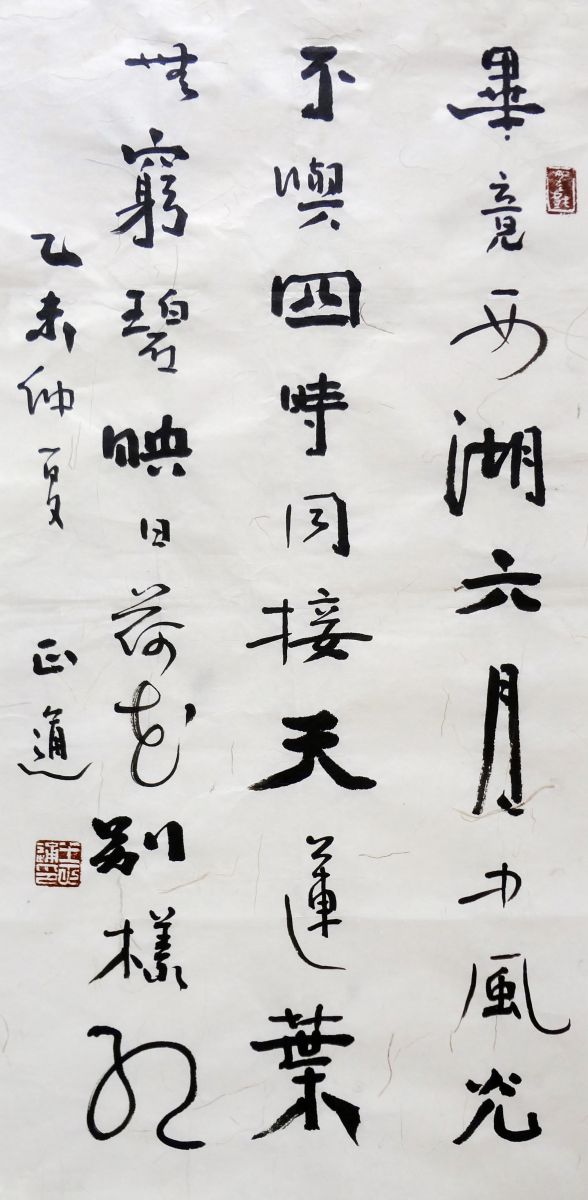 畢竟西湖六月中風光
不與四時同接天蓮葉
無窮碧映日荷花別樣紅
乙未仲夏 正通